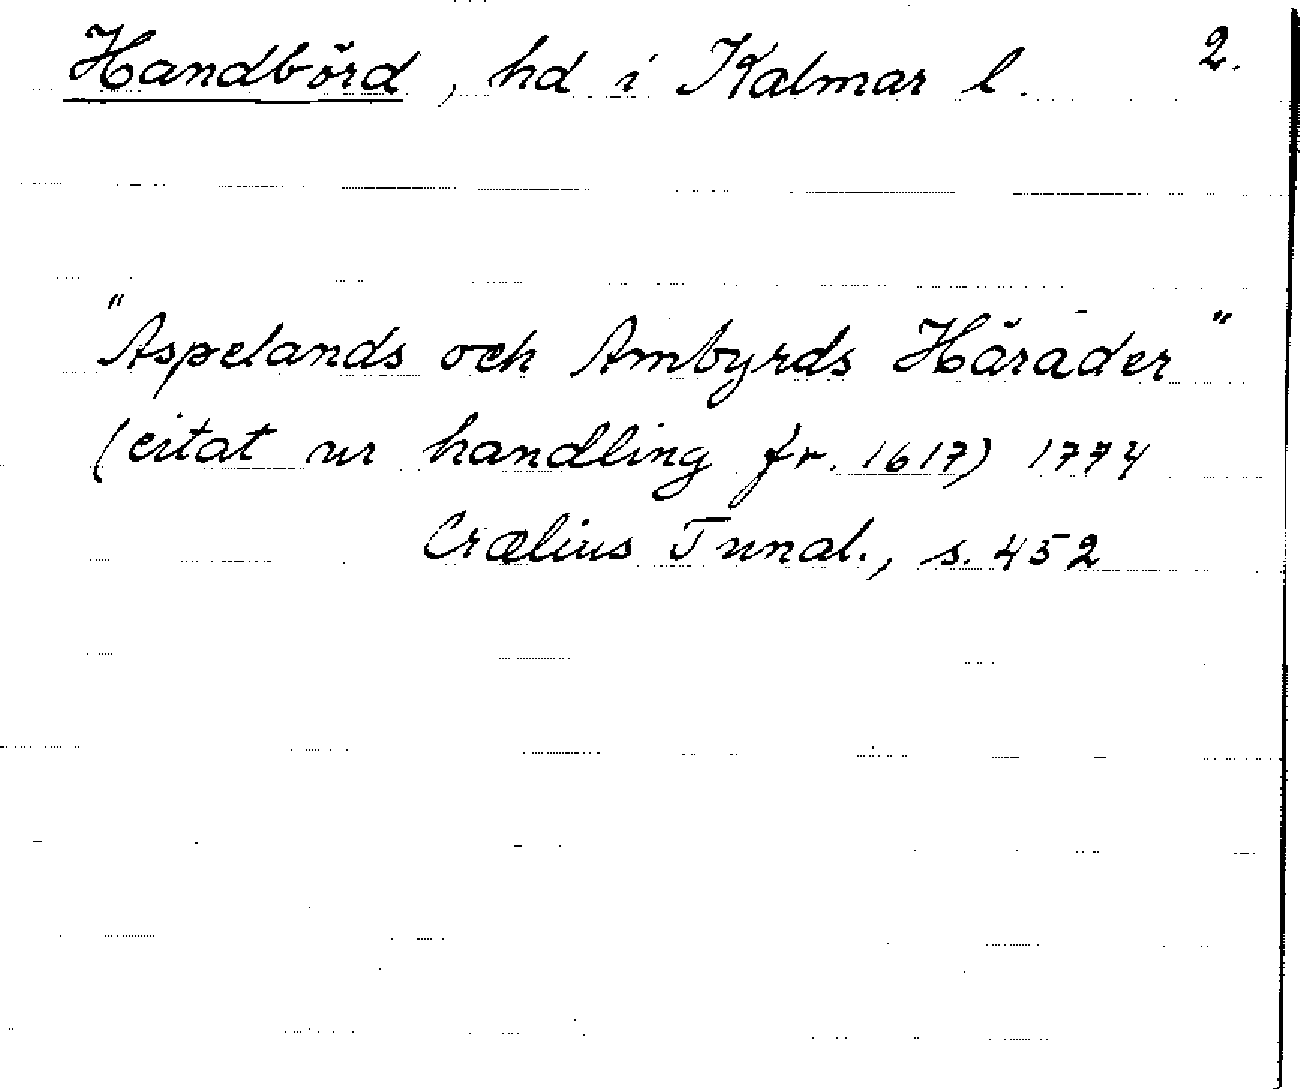 Handbörd, hd i Kalmar l. 2.
"Aspelands och Ambyrds Härader"
(citat ur handling fr. 1617) 1774
Crælius Tunal., s. 452